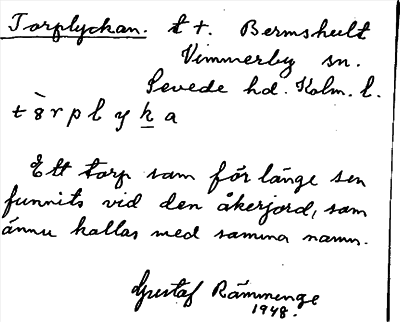 Torplyckan. t t. Bermshult
Vimmerby sn.
Sevede hd. Kalm. l.
t ȍ r p l y k a
Ett torp som för länge sen
funnits vid den åkerjord, som
ännu kallas med samma namn.
Gustaf Rämminge
1948.